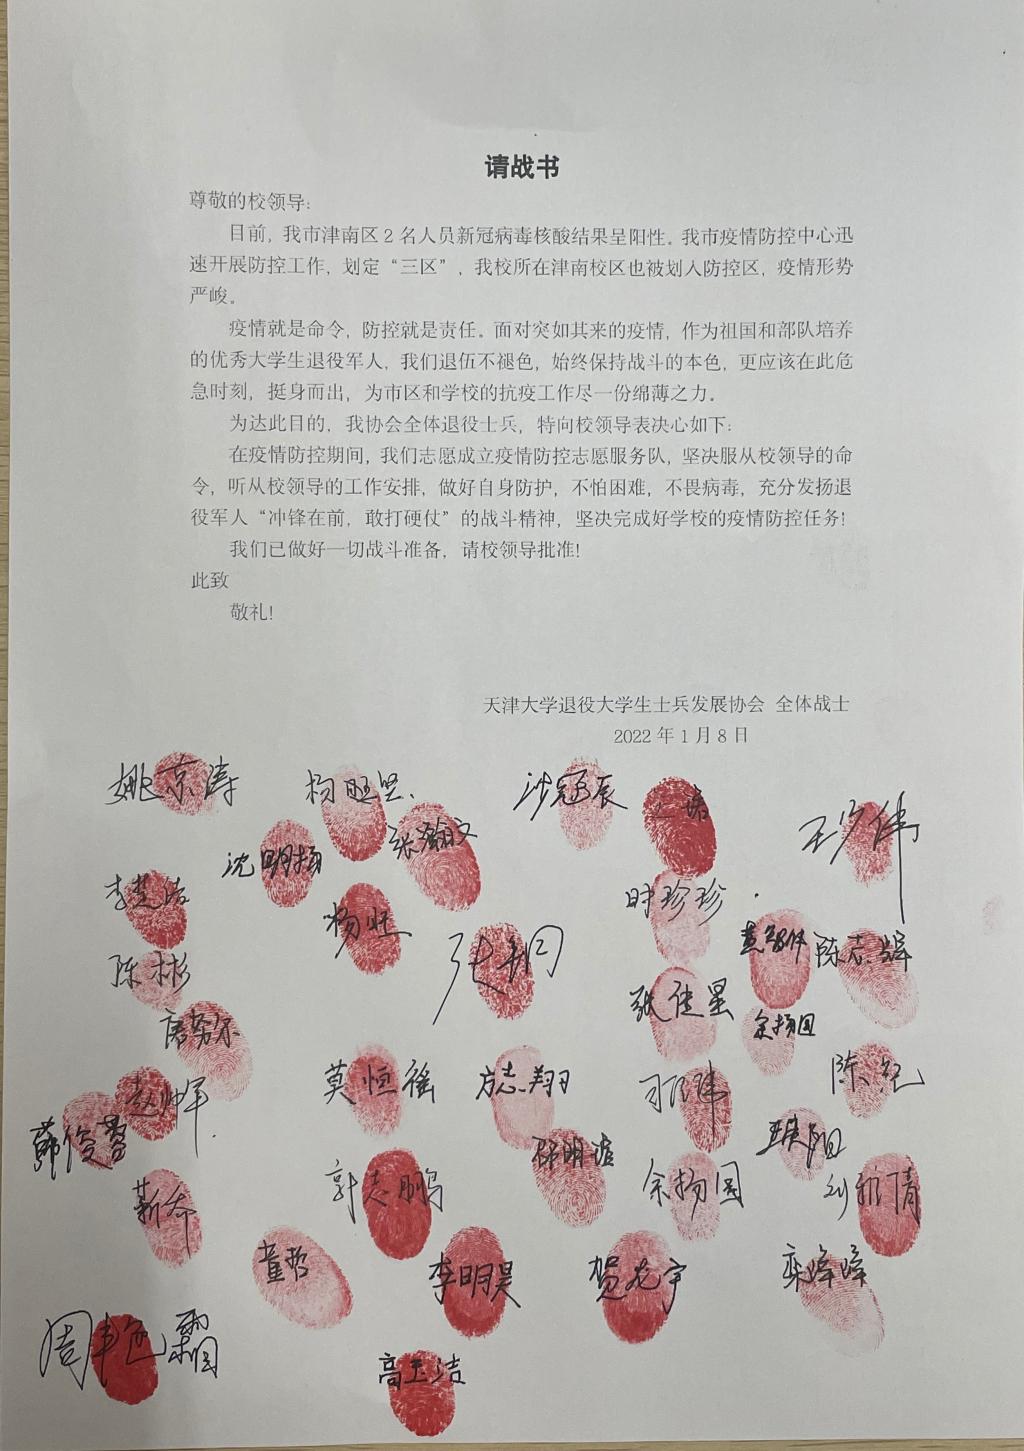 请战书
尊敬的校领导:
目前，我市津南区2名人员新冠病毒核酸结果呈阳性。我市疫情防控中心迅
速开展防控工作，划定“三区”，我校所在津南校区也被划入防控区，疫情形势
严峻。
疫情就是命令，防控就是责任。面对突如其来的疫情，作为祖国和部队培养
的优秀大学生退役军人，我们退伍不褪色，始终保持战斗的本色，更应该在此危
急时刻，挺身而出，为市区和学校的抗疫工作尽一份绵薄之力。
为达此目的，我协会全体退役士兵，特向校领导表决心如下:
在疫情防控期间，我们志愿成立疫情防控志愿服务队，坚决服从校领导的命
令，听从校领导的工作安排，做好自身防护，不怕困难，不畏病毒，充分发扬退
役军人“冲锋在前，敢打硬仗”的战斗精神，坚决完成好学校的疫情防控任务!
我们已做好一切战斗准备，请校领导批准!
此致
敬礼!
天津大学退役大学生士兵发展协会 全体战士
2022年1月8日
姚京涛
沙冠辰
沈明扬
张瀚文
李楚浩
杨旺
时珍珍
陈彬
张钢
陈志辉
张佳星
余扬国
唐努尔
赵帅军
莫恒徭
方志翔
陈纪
薛俊贵
邵明谊
靳奇
郭志鹏
余扬国
刘雅倩
董哲
李明昊
贺龙宇
栾峰峰
高玉洁